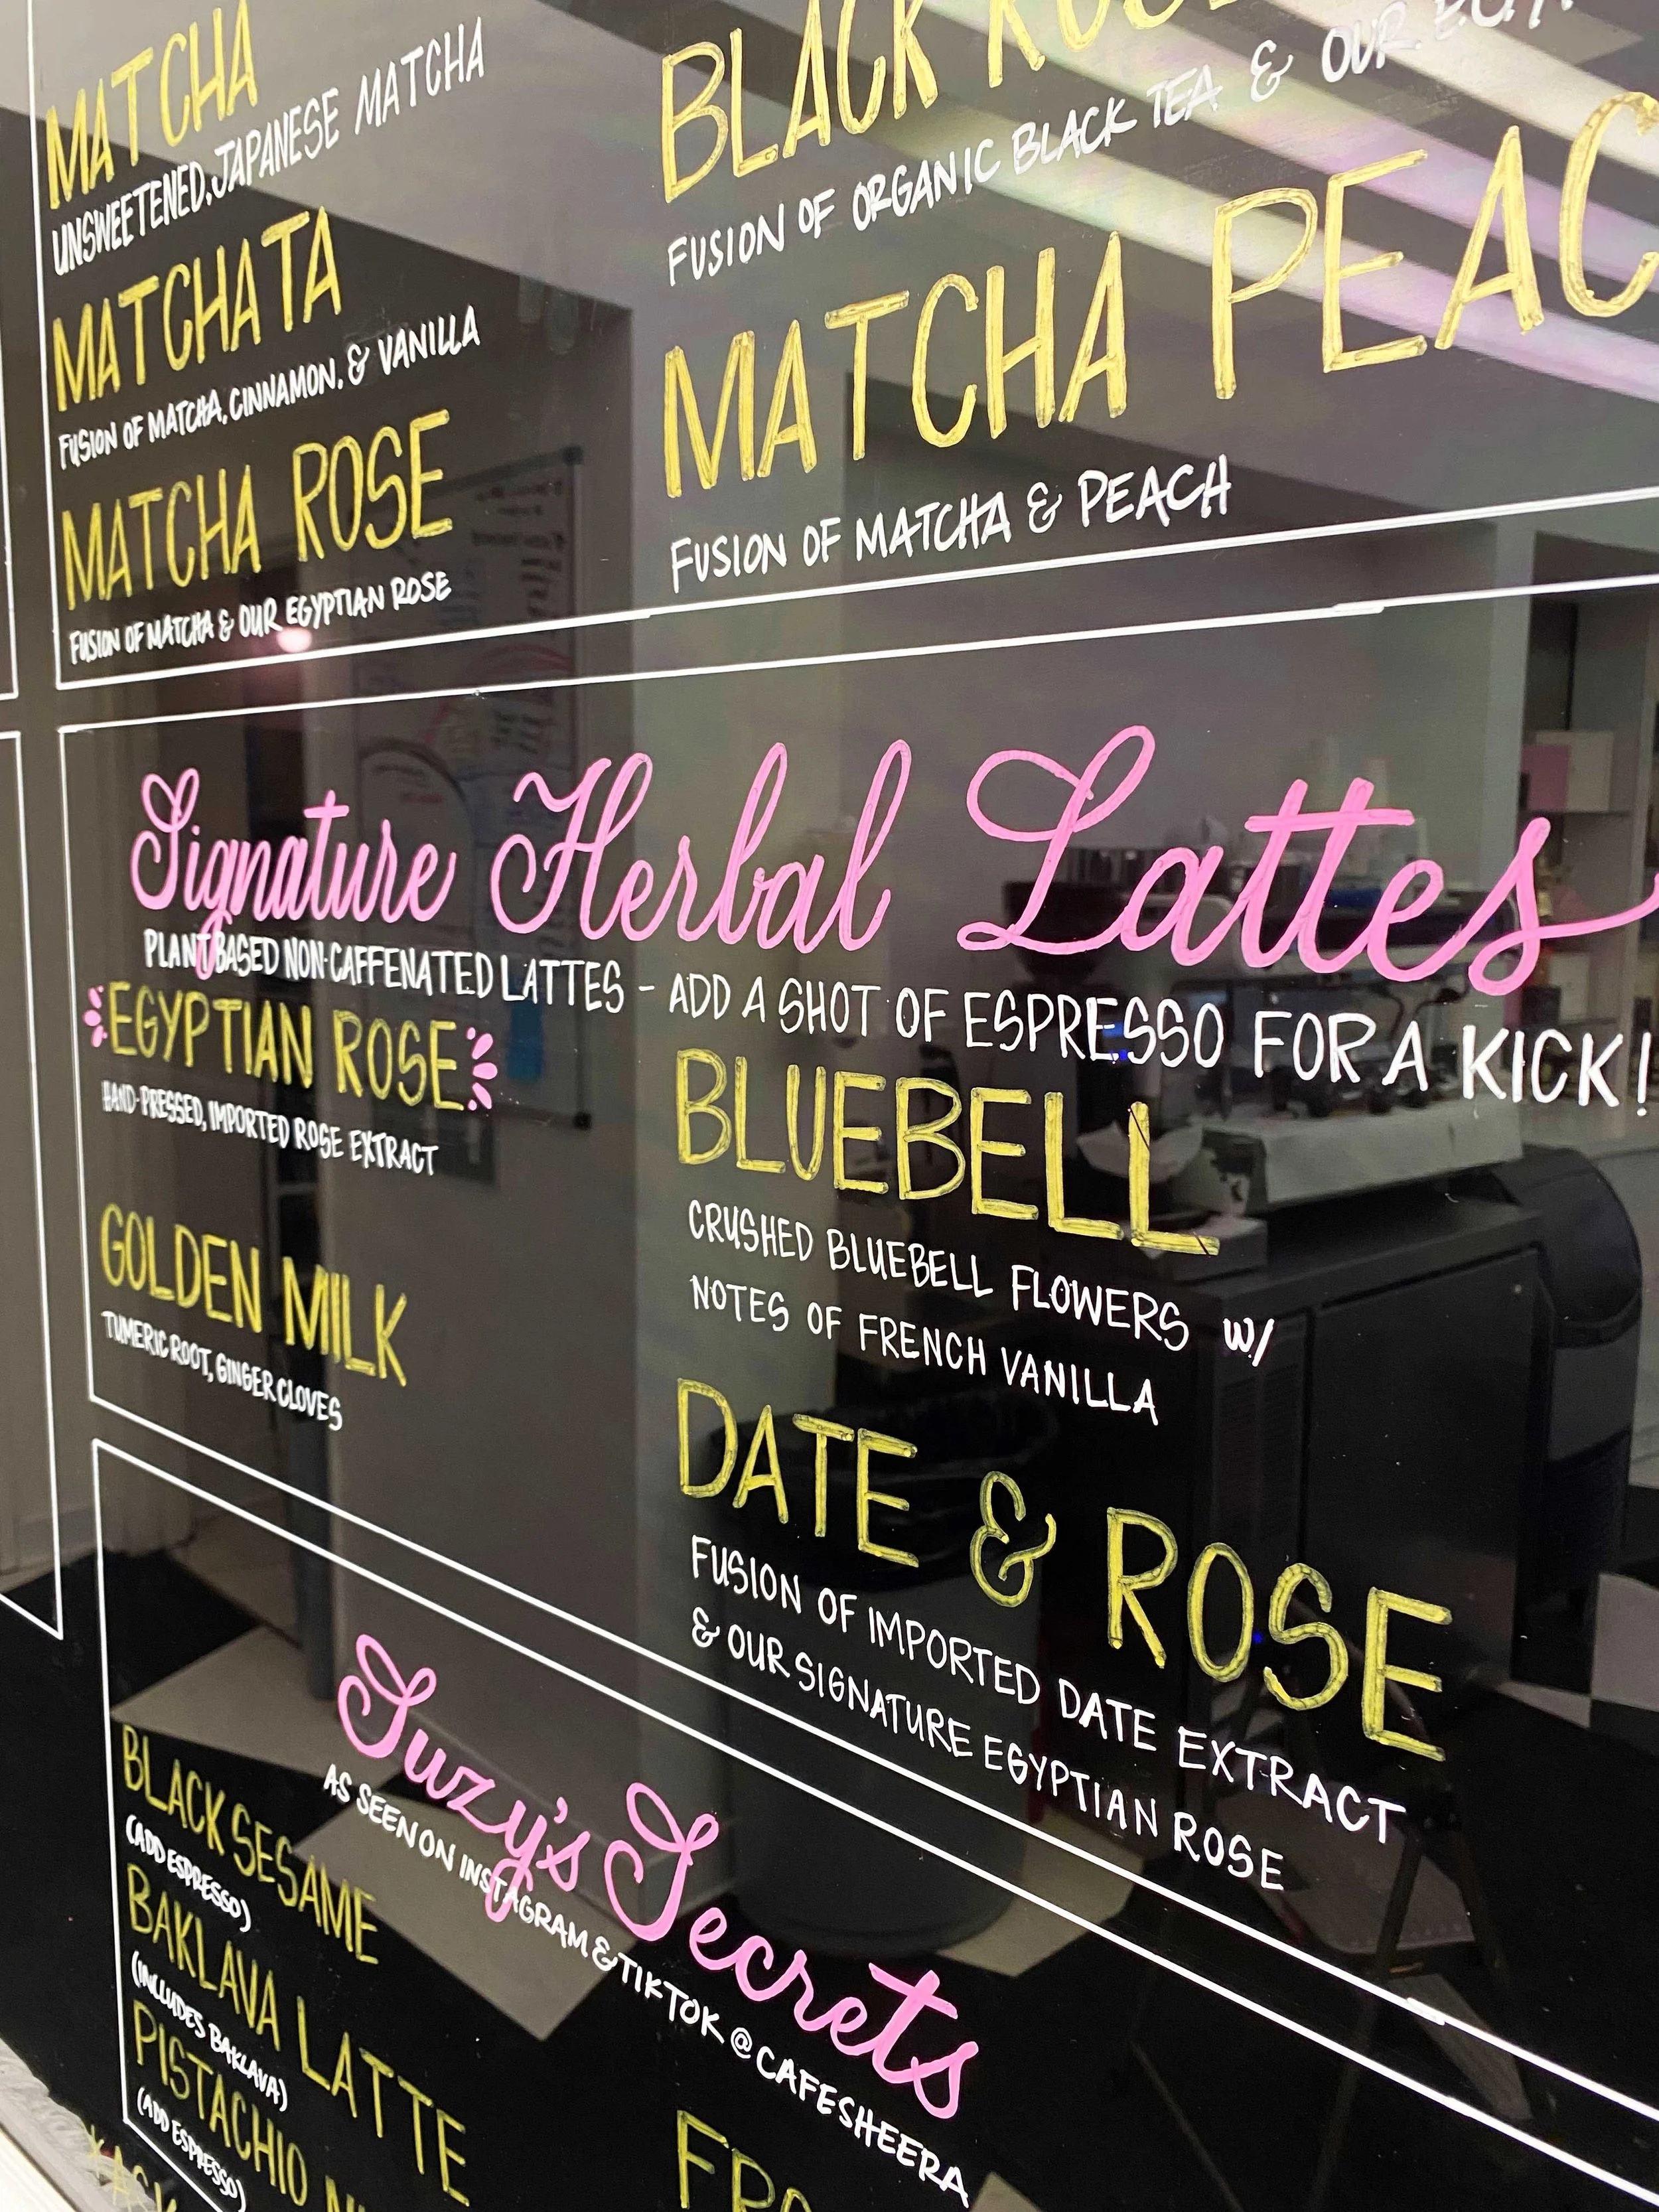 MATCHA
UNSWEETENED, JAPANESE MATCHA
MATCHATA
FUSION OF MATCHA, CINNAMON, & VANILLA
MATCHA ROSE
FUSION OF MATCHA & OUR EGYPTIAN ROSE
BLACK
FUSION OF ORGANIC BLACK TEA & OUR
MATCHA PEAC
FUSION OF MATCHA & PEACH
Signature Herbal Lattes
PLANT BASED NON-CAFFENATED LATTES - ADD A SHOT OF ESPRESSO FOR A KICK!
EGYPTIAN ROSE
HAND-PRESSED, IMPORTED ROSE EXTRACT
GOLDEN MILK
TUMERIC ROOT, GINGER CLOVES
BLUEBELL
CRUSHED BLUEBELL FLOWERS W/
NOTES OF FRENCH VANILLA
DATE & ROSE
FUSION OF IMPORTED DATE EXTRACT
& OUR SIGNATURE EGYPTIAN ROSE
Suzy's Secrets
AS SEEN ON INSTAGRAM & TIKTOK @CAFESHEERA
BLACK SESAME
(ADD ESPRESSO)
BAKLAVA LATTE
(INCLUDES BAKLAVA)
PISTACHIO
(ADD ESPRESSO)